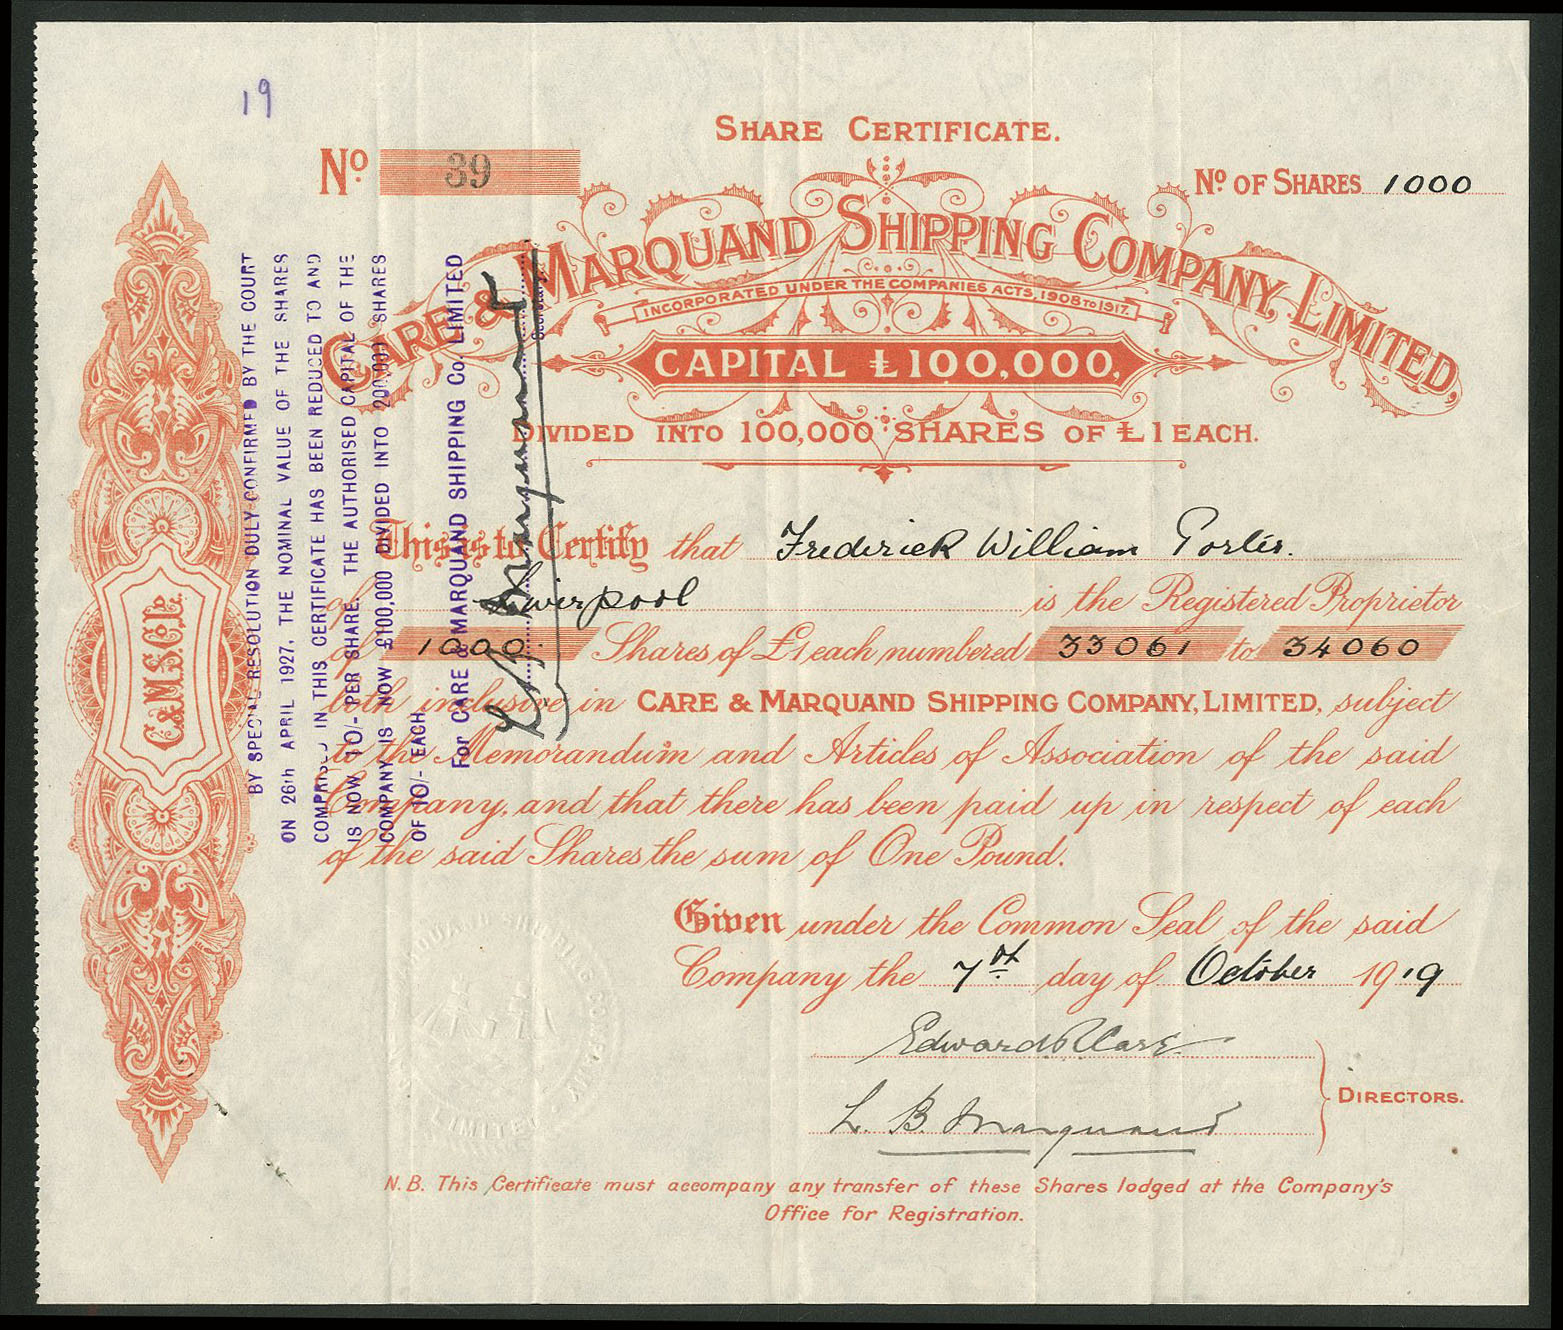 19
SHARE CERTIFICATE.
No. 39
No. OF SHARES 1000
CARE & MARQUAND SHIPPING COMPANY, LIMITED.
INCORPORATED UNDER THE COMPANIES ACTS, 1908 TO 1917.
CAPITAL £100,000,
DIVIDED INTO 100,000 SHARES OF £1 EACH.
This is to Certify that Frederick William Porter.
of Liverpool is the Registered Proprietor
of 1000. Shares of £1 each numbered 33061 to 34060
both inclusive in CARE & MARQUAND SHIPPING COMPANY, LIMITED, subject
to the Memorandum and Articles of Association of the said
Company, and that there has been paid up in respect of each
of the said Shares the sum of One Pound.
Given under the Common Seal of the said
Company the 7th day of October 1919
Edward R Care
L. B. Marquand
DIRECTORS.
N.B. This Certificate must accompany any transfer of these Shares lodged at the Company's
Office for Registration.
C. & M. S. Co. Ld.
BY SPECIAL RESOLUTION DULY CONFIRMED BY THE COURT
ON 26th APRIL 1927, THE NOMINAL VALUE OF THE SHARES
COMPRISED IN THIS CERTIFICATE HAS BEEN REDUCED TO AND
IS NOW 10/- PER SHARE. THE AUTHORISED CAPITAL OF THE
COMPANY IS NOW £100,000 DIVIDED INTO 200,000 SHARES
OF 10/- EACH
For CARE & MARQUAND SHIPPING Co. LIMITED
L B Marquand
Secretary.
MARQUAND SHIPPING COMPANY LIMITED